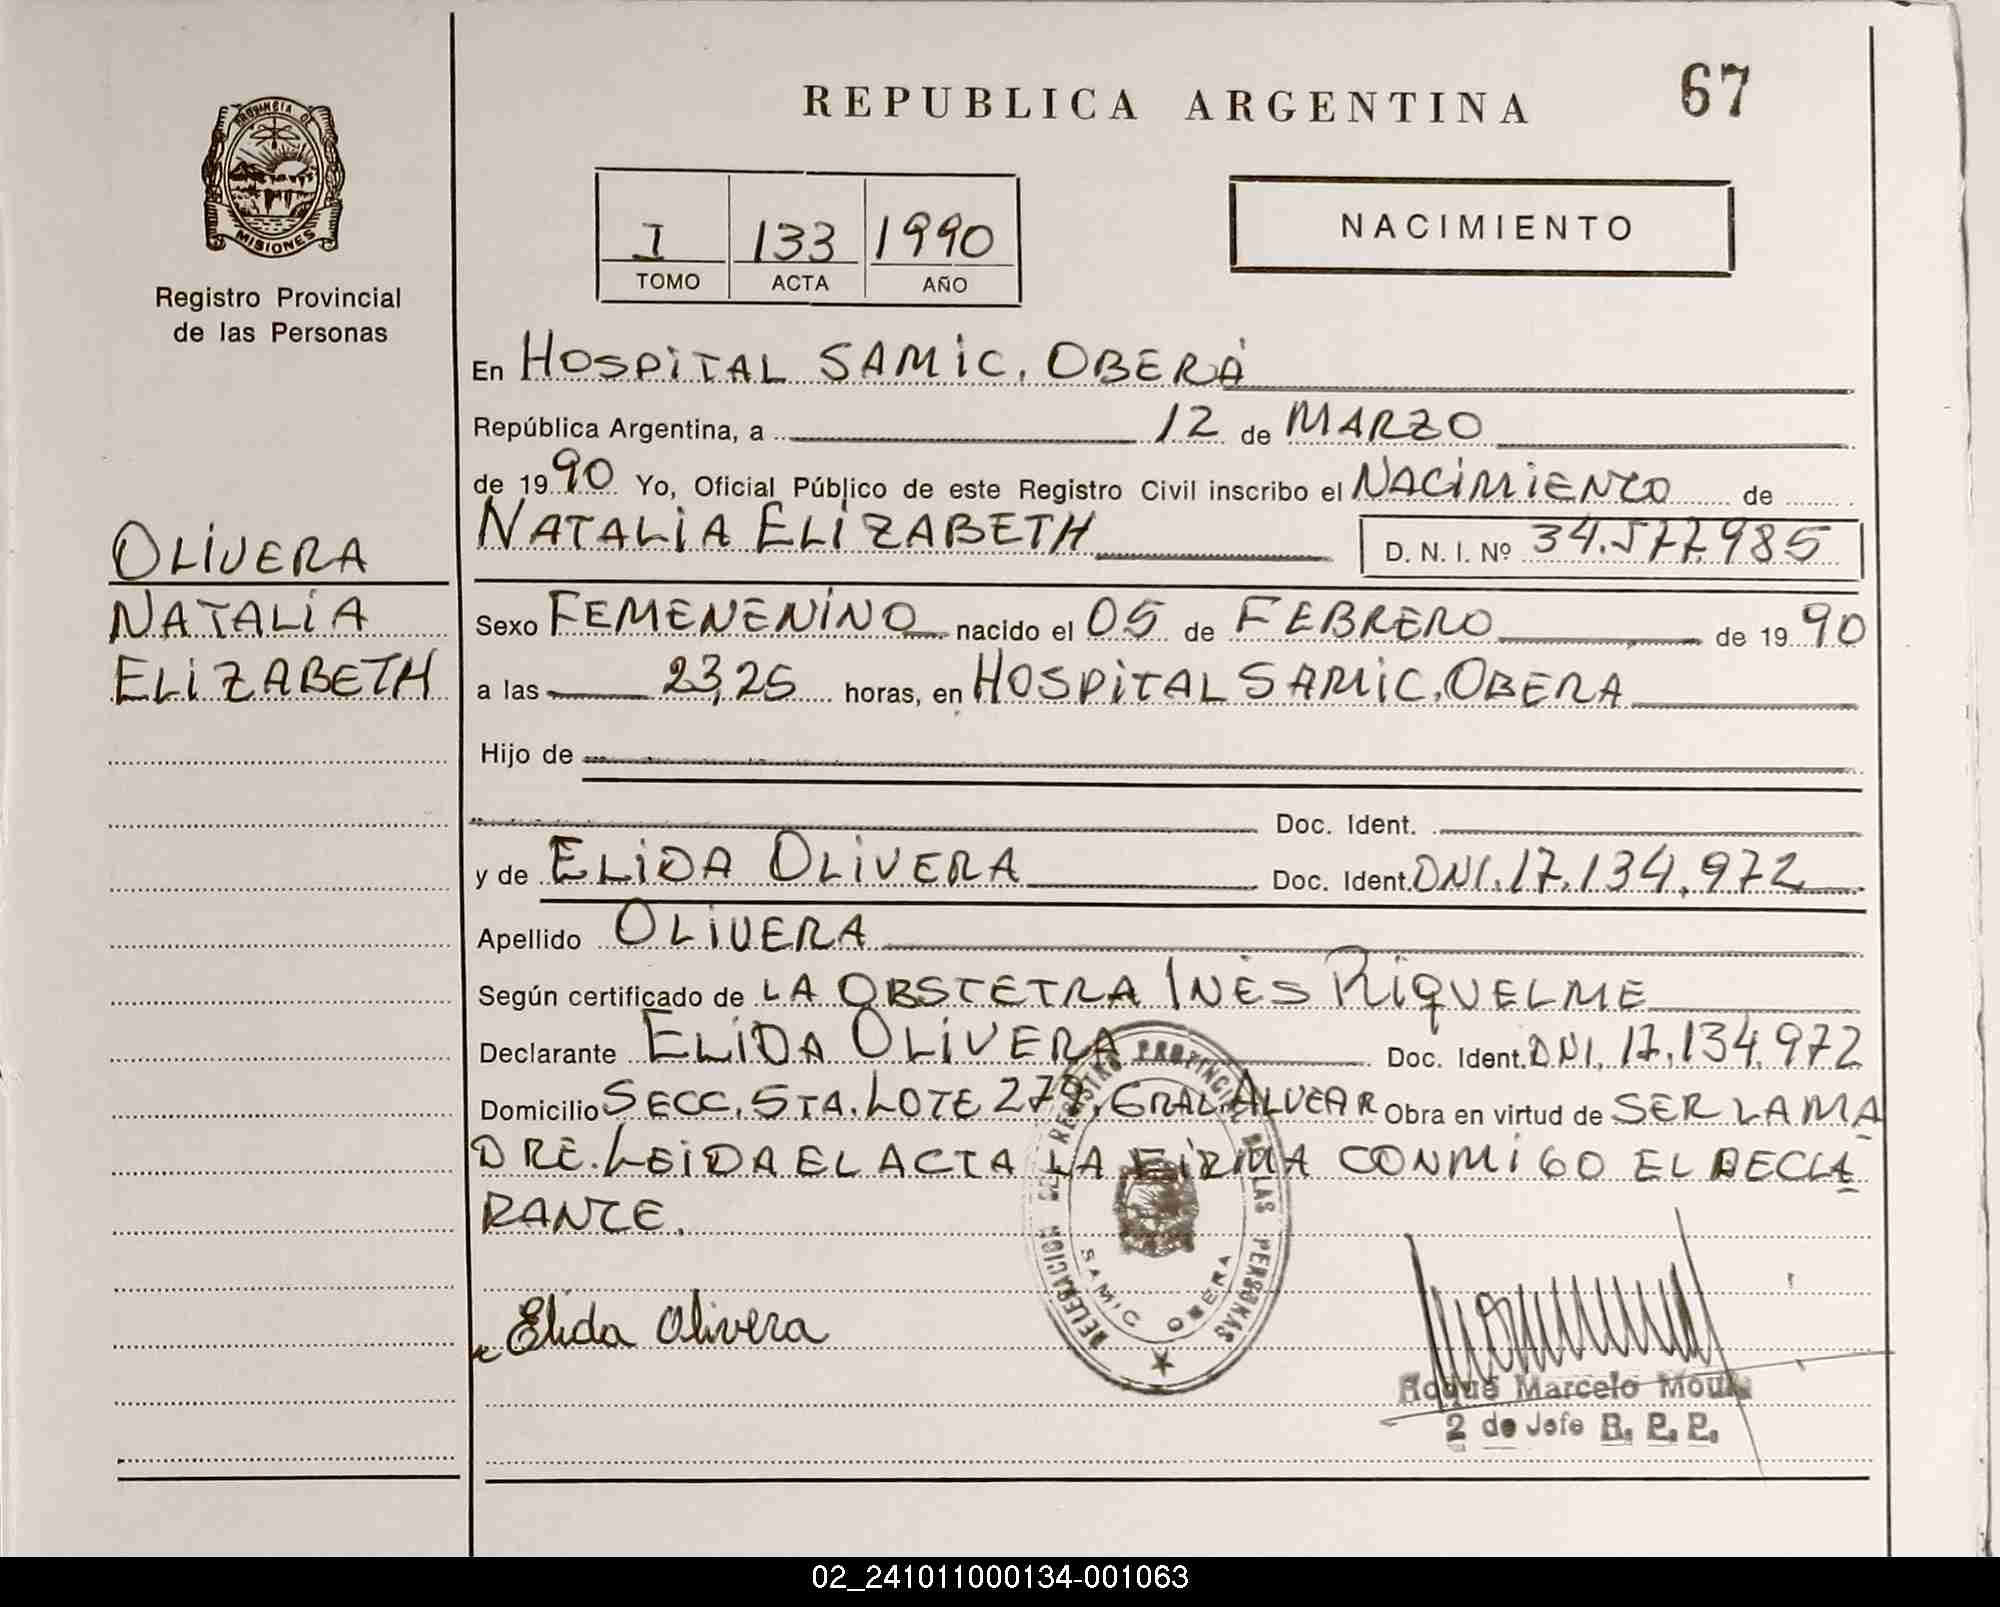 REPUBLICA ARGENTINA
67
PROVINCIA DE
MISIONES
Registro Provincial
de las Personas
I 133 1990
TOMO ACTA AÑO
NACIMIENTO
OLIVERA
NATALIA
ELIZABETH
En HOSPITAL SAMIC, OBERÁ
República Argentina, a 12 de MARZO
de 1990 Yo, Oficial Público de este Registro Civil inscribo el NACIMIENTO de
NATALIA ELIZABETH D. N. I. Nº 34.577.985
Sexo FEMENENINO nacido el 05 de FEBRERO de 1990
a las 23,25 horas, en HOSPITAL SAMIC, OBERA
Hijo de
Doc. Ident.
y de ELIDA OLIVERA Doc. Ident. DNI. 17.134.972
Apellido OLIVERA
Según certificado de LA OBSTETRA INÉS RIQUELME
Declarante ELIDA OLIVERA Doc. Ident. DNI. 17.134.972
Domicilio SECC. 5TA. LOTE 279, GRAL. ALVEAR Obra en virtud de SER LA MA
DRE. LEIDA EL ACTA LA FIRMA CONMIGO EL DECLA
RANTE.
DELEGACION DEL REGISTRO PROVINCIAL DE LAS PERSONAS
SAMIC OBERA
Elida Olivera
Roque Marcelo
2 do Jefe R. P. P.
02_241011000134-001063